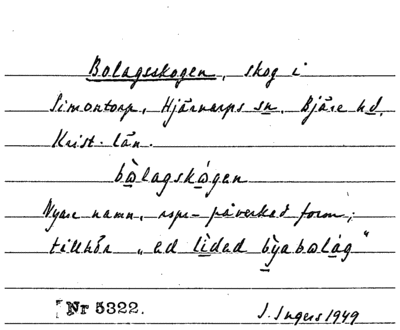 Bolagsskogen, skog i
Simontorp, Hjärnarps sn, Bjäre hd,
Krist. län.
bòlagskógen
Nyare namn, rspr-påverkad form;
tillhör "ed lìded býabolág"
Nr 5322.
J. Ingers 1949